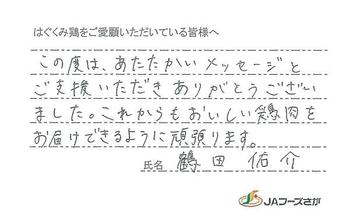 はぐくみ鶏をご愛顧いただいている皆様へ
この度は、あたたかいメッセージと
ご支援いただきありがとうござい
ました。これからもおいしい鶏肉を
お届けできるように頑張ります。
氏名 鶴田佑介
JAフーズさが